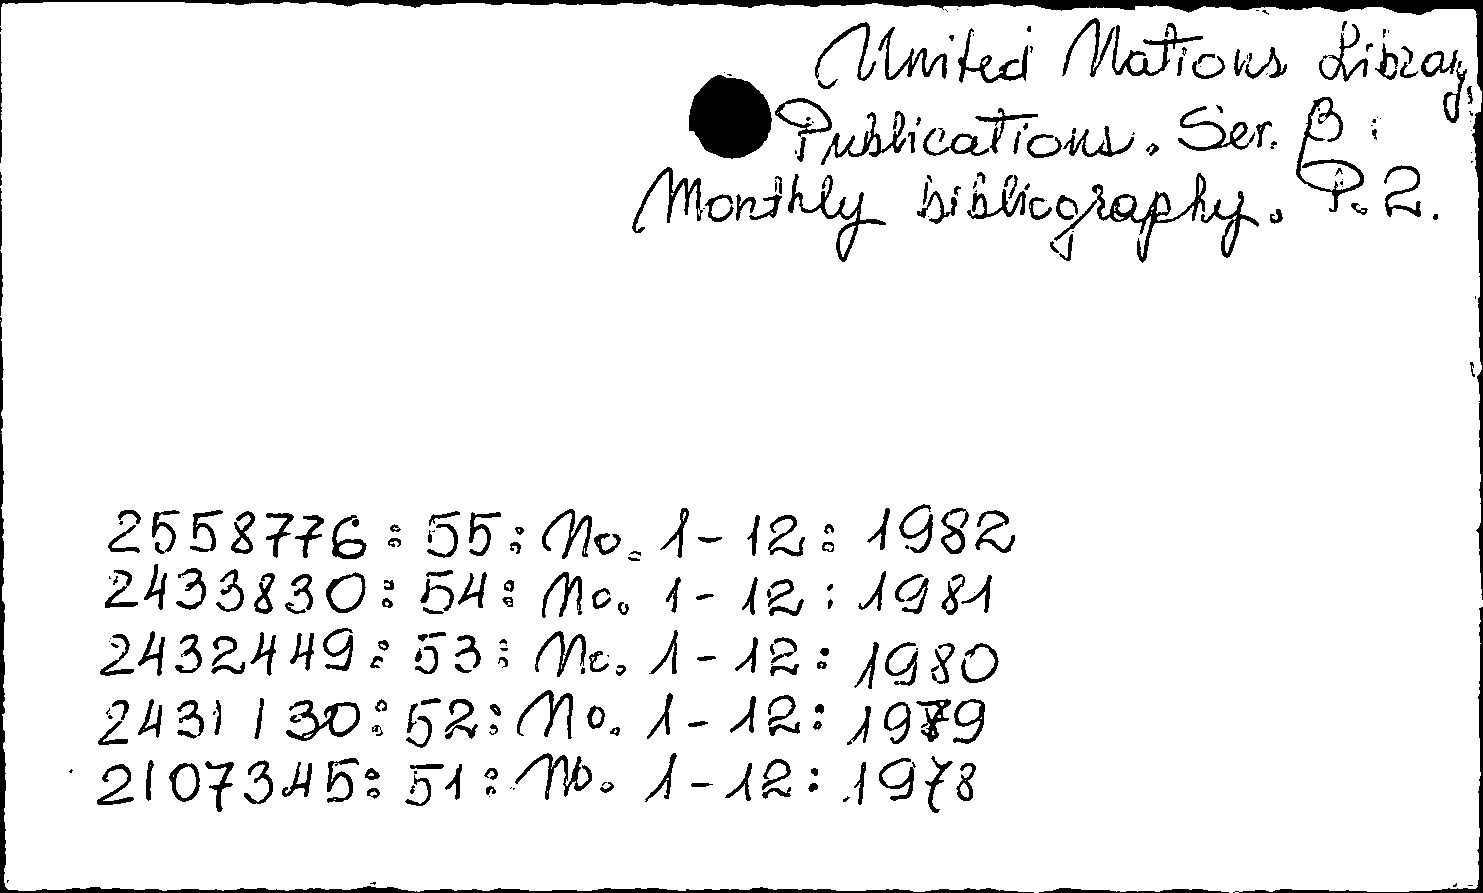 United Nations Library.
Publications. Ser. B :
Monthly bibliography. P. 2.
2558776 : 55 : No. 1 - 12 : 1982
2433830 : 54 : No. 1 - 12 : 1981
2432449 : 53 : No. 1 - 12 : 1980
2431130 : 52 : No. 1 - 12 : 1979
2107345 : 51 : No. 1 - 12 : 1978